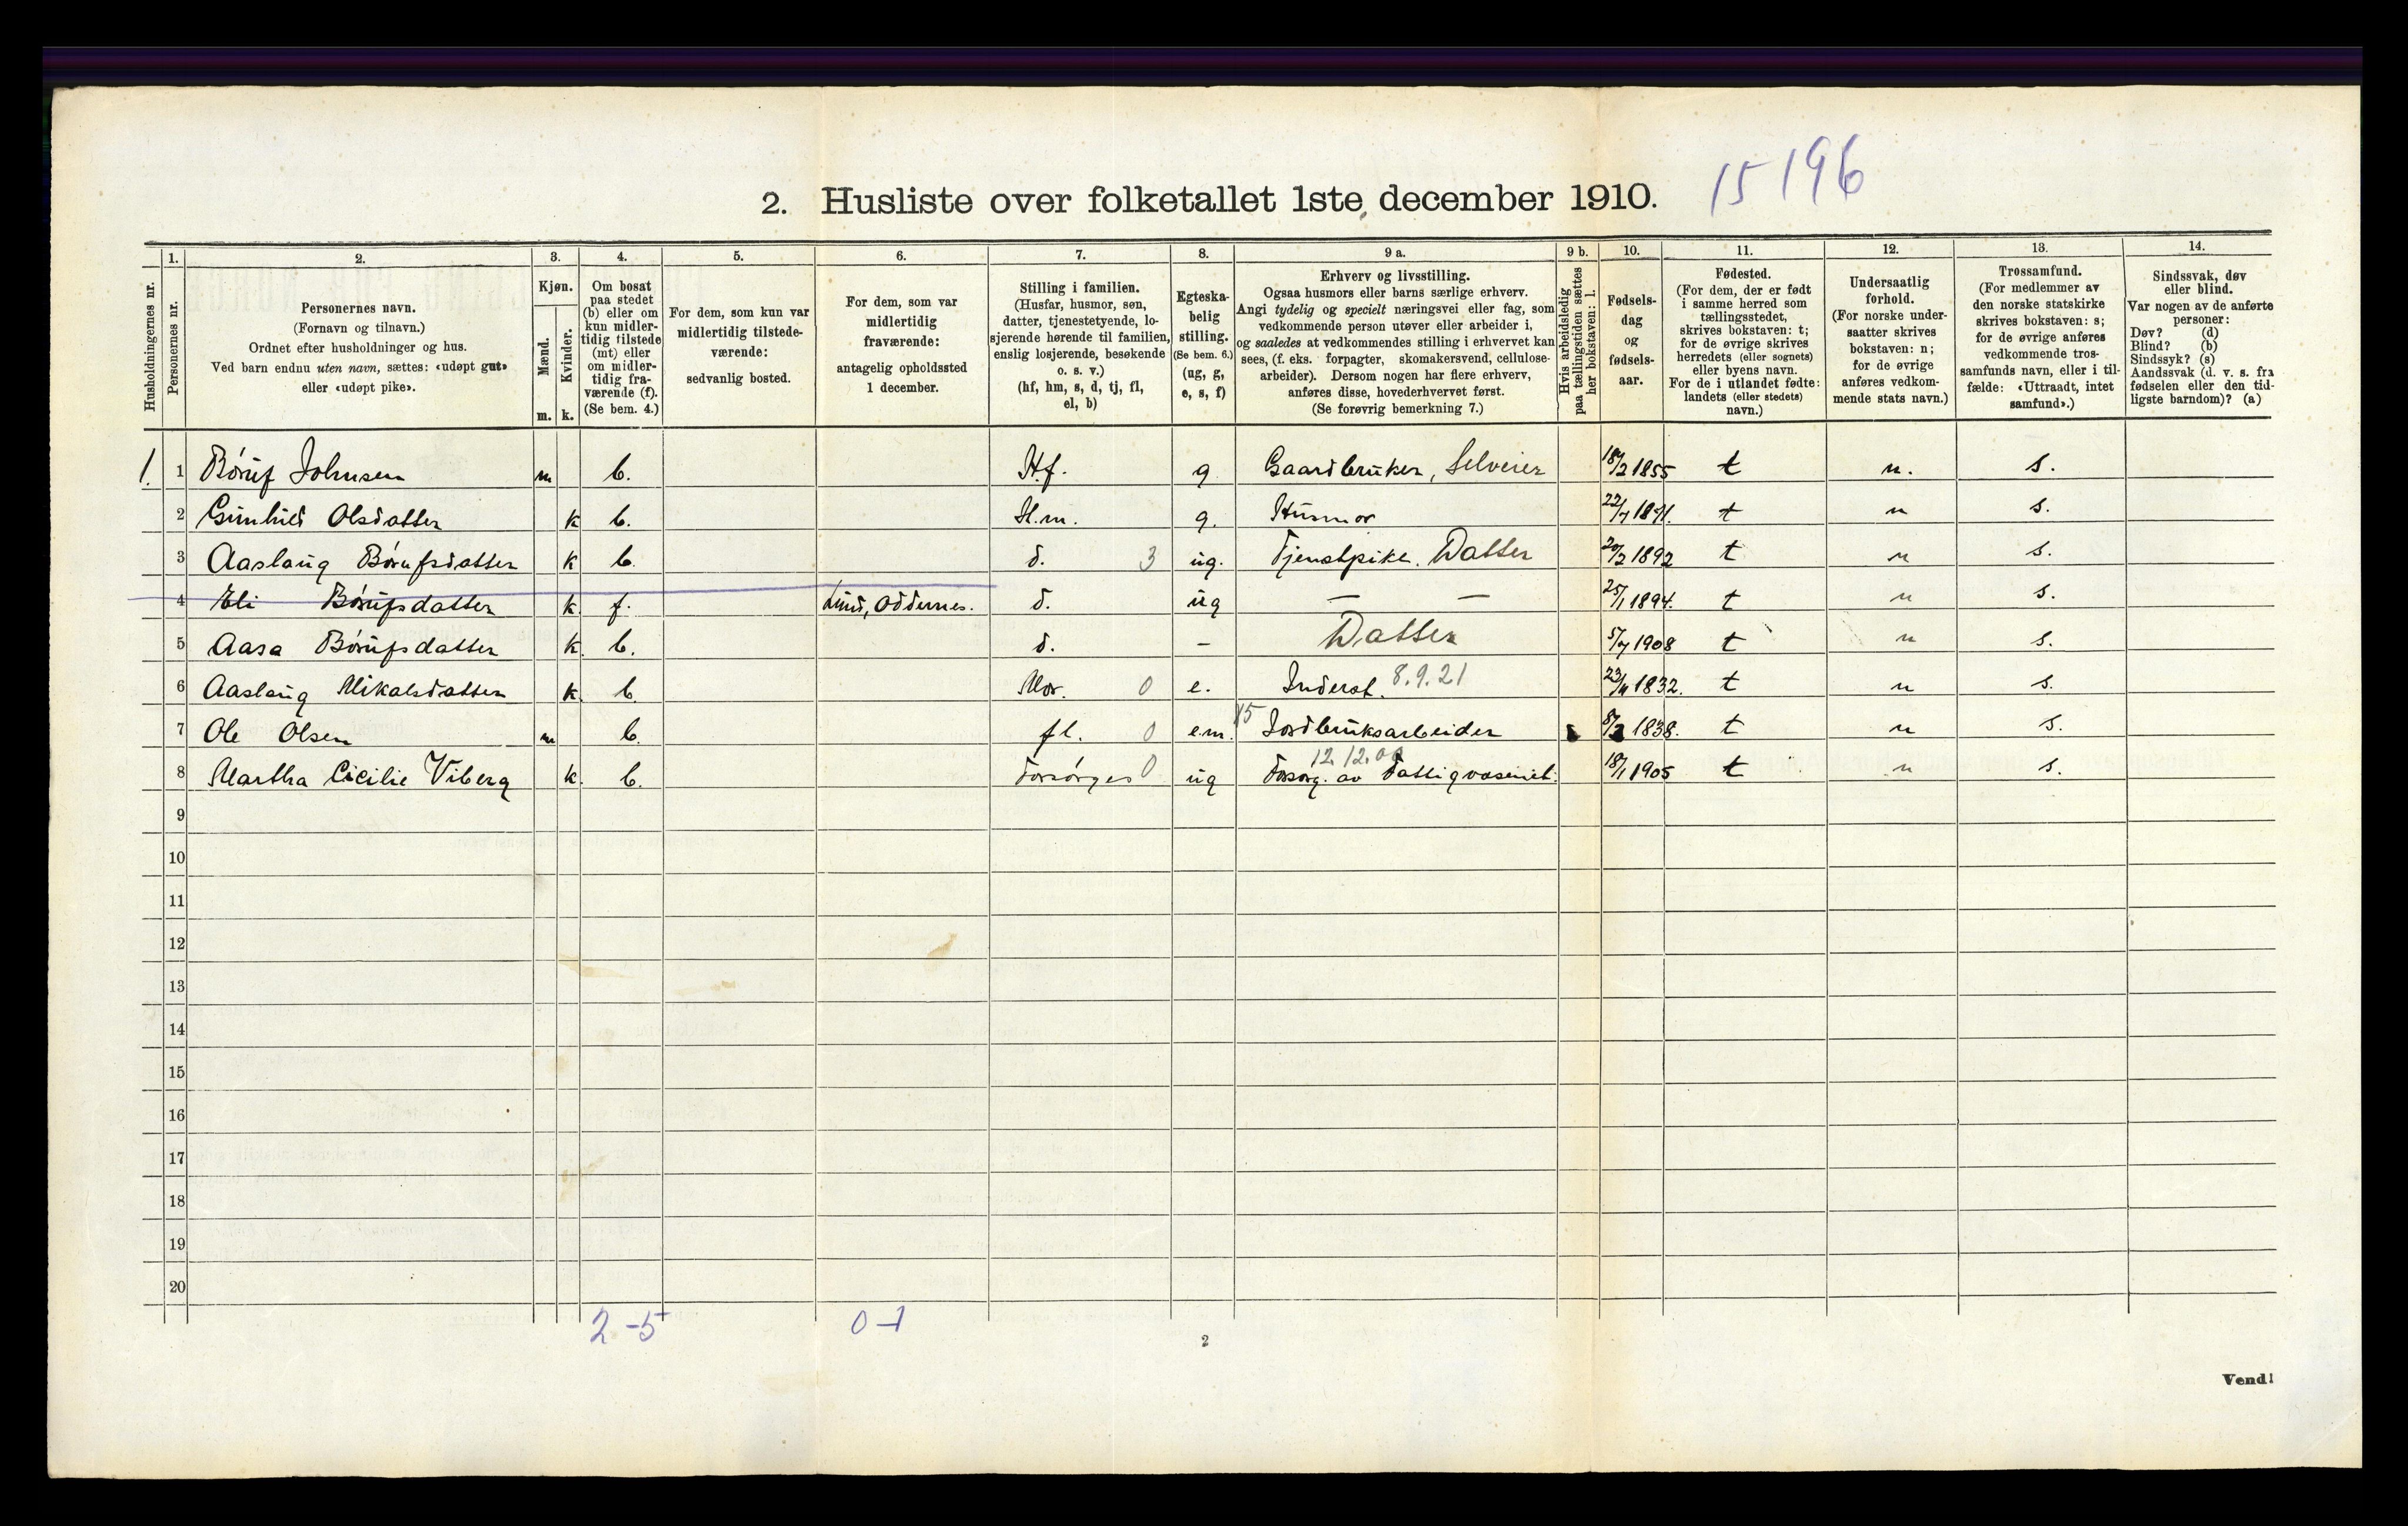 15 196
2. Husliste over folketallet 1ste december 1910.
Husholdningernes nr.
1. Personernes nr.
2. Personernes navn.
(Fornavn og tilnavn.)
Ordnet efter husholdninger og hus.
Ved barn endnu uten navn, sættes: «udøpt gut»
eller «udøpt pike».
3. Kjøn.
Mænd. m.
Kvinder. k.
4. Om bosat
paa stedet
(b) eller om
kun midler-
tidig tilstede
(mt) eller
om midler-
tidig fra-
værende (f).
(Se bem. 4.)
5. For dem, som kun var
midlertidig tilstede-
værende:
sedvanlig bosted.
6. For dem, som var
midlertidig
fraværende:
antagelig opholdssted
1 december.
7. Stilling i familien.
(Husfar, husmor, søn,
datter, tjenestetyende, lo-
sjerende hørende til familien,
enslig losjerende, besøkende
o. s. v.)
(hf, hm, s, d, tj, fl,
el, b)
8. Egteska-
belig
stilling.
(Se bem. 6.)
(ug, g,
e, s, f)
9 a. Erhverv og livsstilling.
Ogsaa husmors eller barns særlige erhverv.
Angi tydelig og specielt næringsvei eller fag, som
vedkommende person utøver eller arbeider i,
og saaledes at vedkommendes stilling i erhvervet kan
sees, (f. eks. forpagter, skomakersvend, cellulose-
arbeider). Dersom nogen har flere erhverv,
anføres disse, hovederhvervet først.
(Se forøvrig bemerkning 7.)
9 b. Hvis arbeidsledig
paa tællingstiden sættes
her bokstaven: l.
10. Fødsels-
dag
og
fødsels-
aar.
11. Fødested.
(For dem, der er født
i samme herred som
tællingsstedet,
skrives bokstaven: t;
for de øvrige skrives
herredets (eller sognets)
eller byens navn.
For de i utlandet fødte:
landets (eller stedets)
navn.)
12. Undersaatlig
forhold.
(For norske under-
saatter skrives
bokstaven: n;
for de øvrige
anføres vedkom-
mende stats navn.)
13. Trossamfund.
(For medlemmer av
den norske statskirke
skrives bokstaven: s;
for de øvrige anføres
vedkommende tros-
samfunds navn, eller i til-
fælde: «Uttraadt, intet
samfund».)
14. Sindssvak, døv
eller blind.
Var nogen av de anførte
personer:
Døv? (d)
Blind? (b)
Sindssyk? (s)
Aandssvak (d. v. s. fra
fødselen eller den tid-
ligste barndom)? (a)
1. 1 Børuf Johnsen m b. H.f. g Gaardbruker, Selveier 18/2 1855 t n. s.
2 Gunhild Olsdatter k b. H.m. g. Husmor 22/7 1871. t n s.
3 Aaslaug Børufsdatter k b. d. 3 ug. Tjenestpike. Datter 20/2 1892 t n s.
4 Eli Børufsdatter k. f. Lund, Oddernes. d. ug — — 25/1 1894. t n s.
5 Aasa Børufsdatter k. b. d. - Datter 5/7 1908 t n s.
6 Aaslaug Mikalsdatter k. b Mor. 0 e. Inderst. 8.9.21 23/11 1832. t n s.
7 Ole Olsen m b. fl. 0 e.m. 15 Jordbruksarbeider 8/2 1838. t n s.
12.12.00
8 Martha Cicilie Viberg k. b. Forsørges 0 ug Forsørg. av Fattigvæsenet. 18/1 1905 t n s.
9
10
11
12
13
14
15
16
17
18
19
20
2-5 0-1
2
Vend!